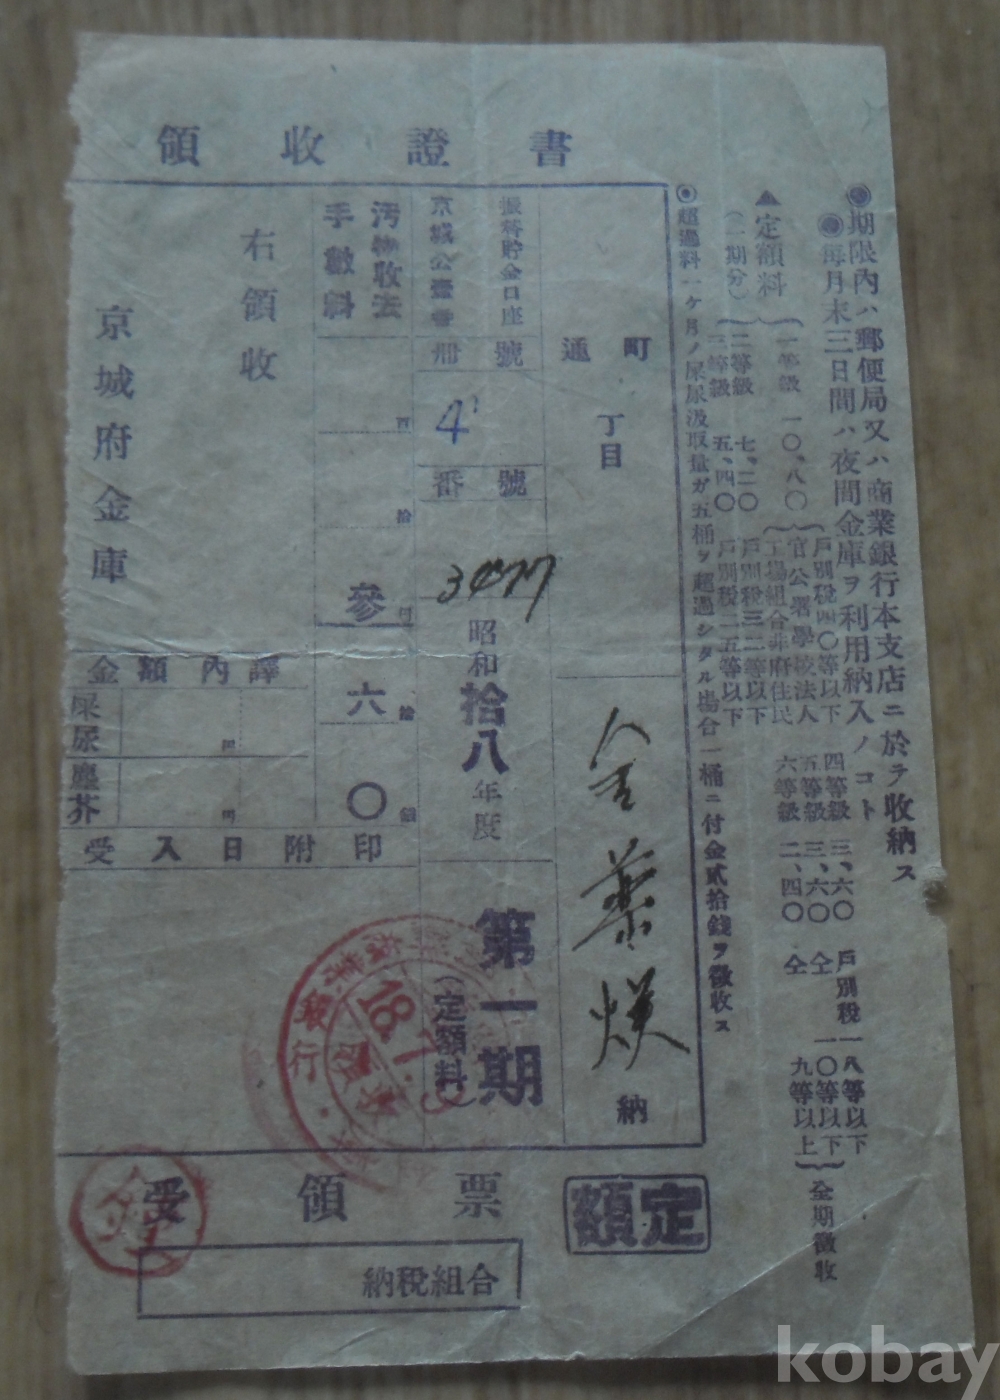 領收證書
◉期限內ハ郵便局又ハ商業銀行本支店ニ於テ收納ス
◉每月末三日間ハ夜間金庫ヲ利用納入ノコト
▲定額料
(一期分)
一等級 一〇、八〇
二等級 七、二〇
三等級 五、四〇
戶別稅四〇等以下
官公署學校法人
工場組合非府住民
戶別稅三二等以下
戶別稅二五等以下
四等級 三、六〇 戶別稅一八等以下
五等級 三、六〇 仝 一〇等以下
六等級 二、四〇 仝 九等以上
全期徵收
◉超過料一ケ月ノ屎尿汲取量ガ五桶ヲ超過シタル場合一桶ニ付金貳拾錢ヲ徵收ス
町
通
丁目
納
振替貯金口座
京城公壹番
號
冊
4
號
番
昭和拾八年度
第一期
(定額料)
汚物收去
手數料
百
拾
參
圓
六
拾
〇
錢
右領收
京城府金庫
金額內譯
屎尿
圓
塵芥
圓
受入日附印
18.
銀行
受領票
定額
納稅組合
kobay